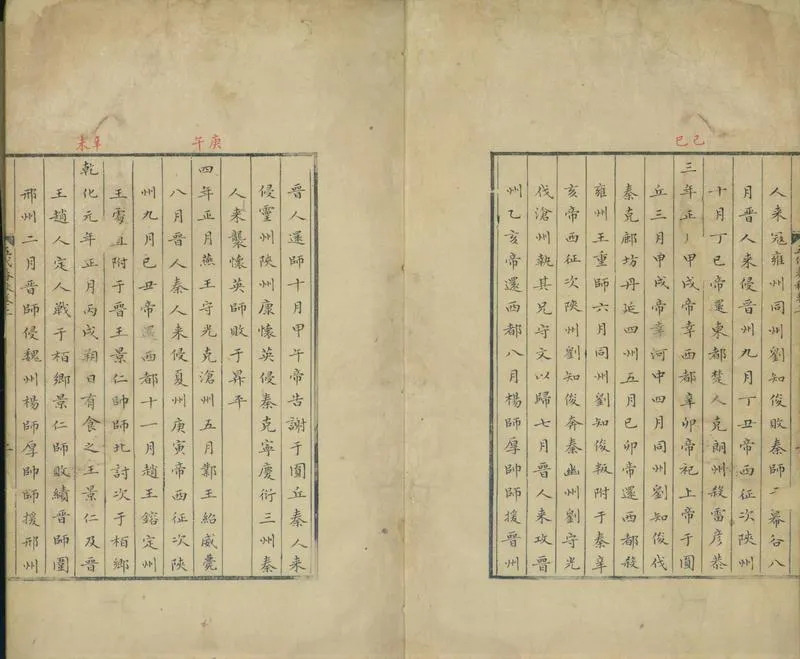 己巳
人来寇雍州同州劉知俊敗秦師幕谷八
月晉人来侵晉州九月丁丑帝西征次陝州
十月丁巳帝還東都楚人克朗州殺雷彥恭
三年正月甲戌帝幸西都辛卯帝祀上帝于圓
丘三月甲戌帝幸河中四月同州劉知俊伐
秦克鄜坊丹延四州五月己卯帝還西都殺
雍州王重師六月同州劉知俊叛附于秦辛
亥帝西征次陝州劉知俊奔秦幽州劉守光
伐滄州執其兄守文以歸七月晉人来攻晉
州乙亥帝還西都八月楊師厚帥師援晉州
晉人還師十月甲午帝告謝于圓丘秦人来
侵靈州陝州康懷英侵秦克寧慶衍三州秦
人来襲懷英師敗于昇平
庚午
四年正月燕王守光克滄州五月鄴王紹威薨
八月晉人秦人来侵夏州庚寅帝西征次陝
州九月己丑帝還西都十一月趙王鎔定州
王處直附于晉王景仁帥師北討次于栢鄉
辛未
乾化元年正月丙戌朔日有食之王景仁及晉
王趙人定人戰于栢鄉景仁師敗績晉師圍
邢州二月晉師侵魏州楊師厚帥師援邢州